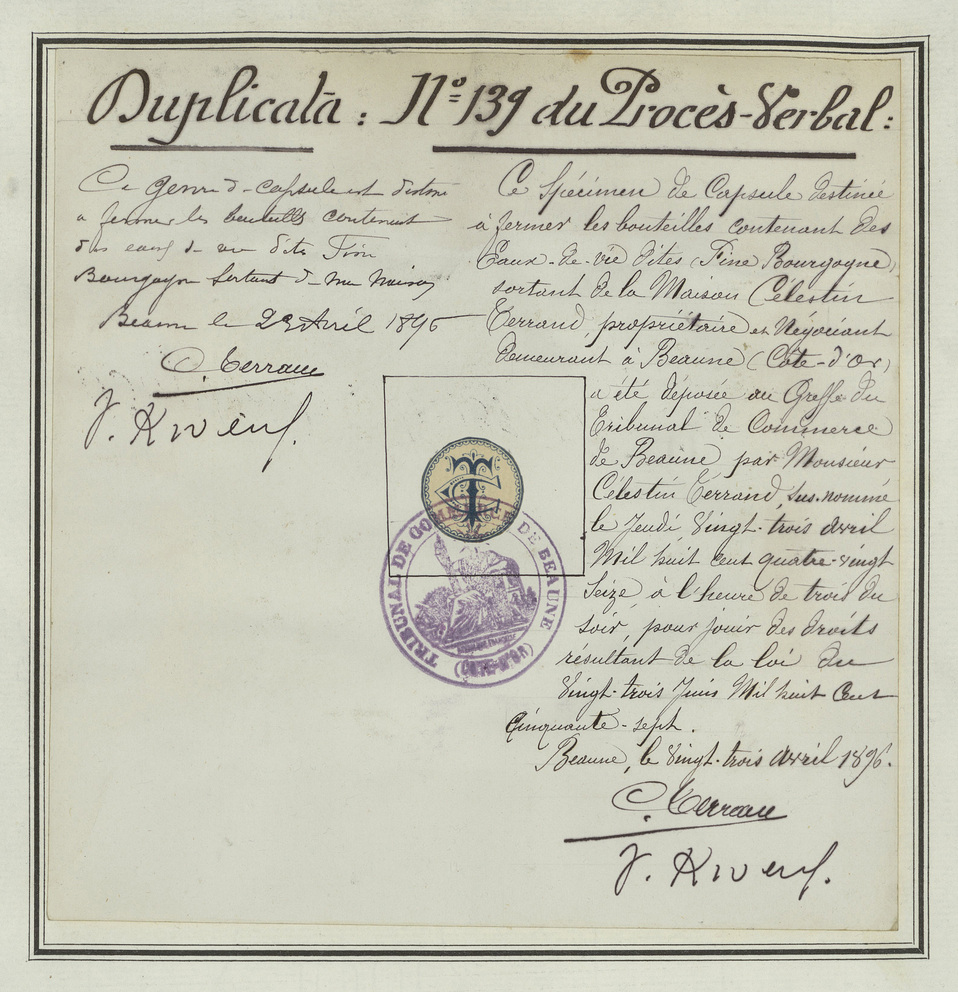 Duplicata : N° 139 du Procès-Verbal :
Ce genre de capsule est destiné
a fermer les bouteilles contenant
des eaux de vie dites Fine
Bourgogne sortant de ma maison
Beaune le 23 Avril 1896
C. Terrand
Ce Spécimen de Capsule destinée
à fermer les bouteilles contenant des
Eaux-de-vie dites (Fine Bourgogne)
sortant de la Maison Célestin
Terrand, propriétaire et Négociant
demeurant à Beaune (Côte-d'Or)
a été déposée au Greffe du
Tribunal de Commerce
de Beaune par Monsieur
Célestin Terrand, sus-nommé
le Jeudi Vingt-trois avril
Mil huit cent quatre-vingt
Seize, à l'heure de trois du
soir, pour jouir des droits
résultant de la loi du
Vingt-trois Juin Mil huit Cent
Cinquante-sept.
Beaune, le Vingt-trois avril 1896.
C. Terrand
TRIBUNAL DE COMMERCE DE BEAUNE
(CÔTE-D'OR)